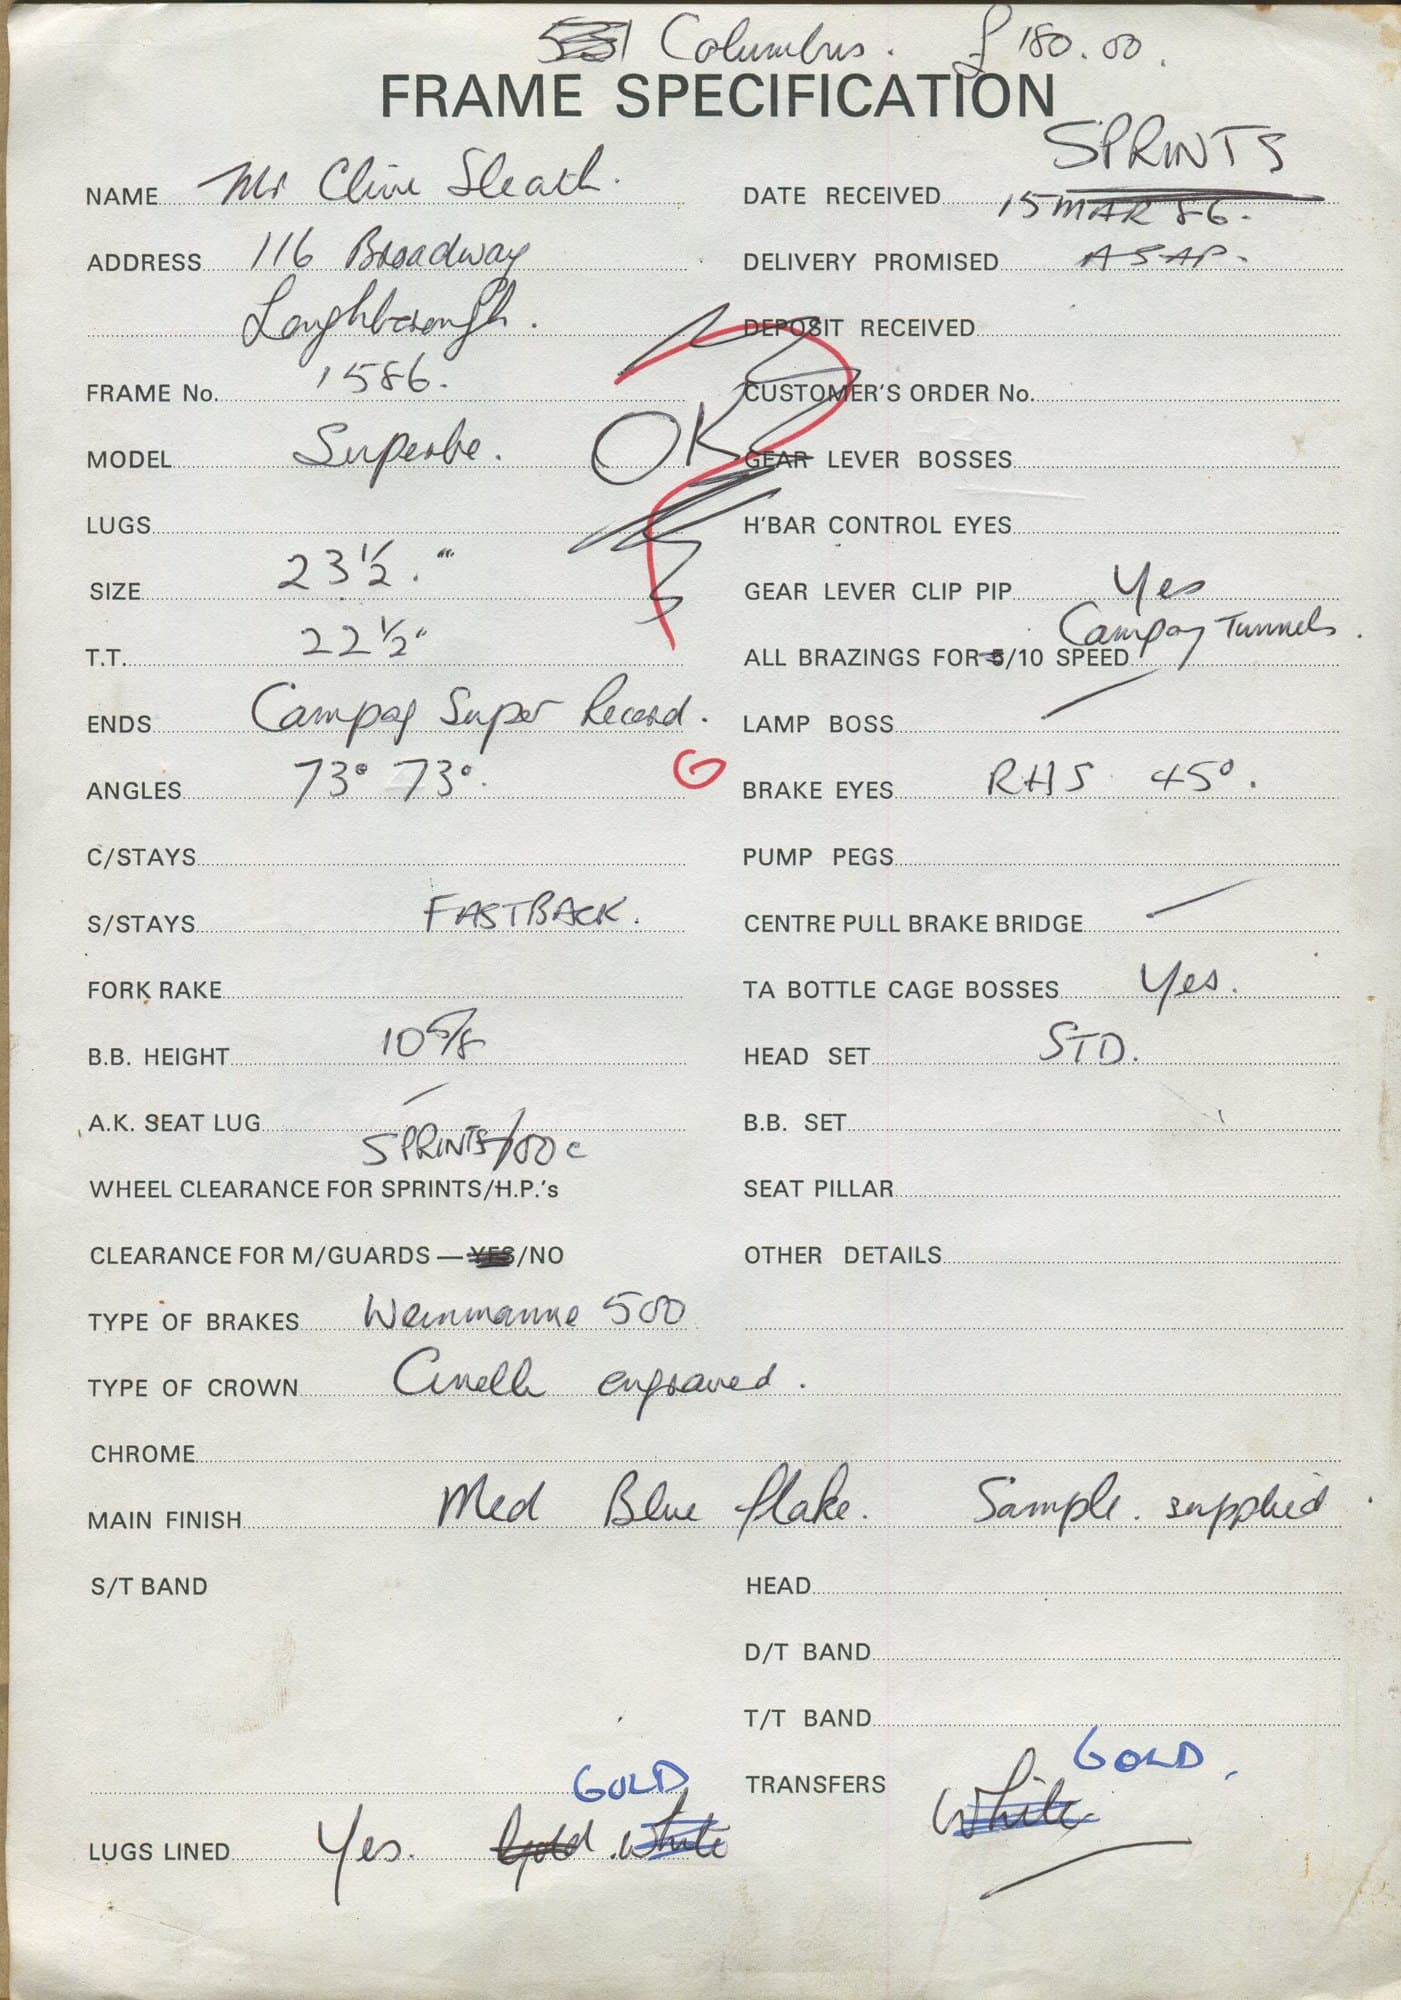 Columbus. £180.00.
FRAME SPECIFICATION
SPRINTS
NAME Mr Clive Sleath.
DATE RECEIVED 15 MAR 86.
ADDRESS 116 Broadway
DELIVERY PROMISED ASAP.
Loughborough.
DEPOSIT RECEIVED
FRAME No. 1586.
CUSTOMER'S ORDER No.
MODEL Superbe. OK ?
GEAR LEVER BOSSES
LUGS
H'BAR CONTROL EYES
SIZE 23 1/2."
GEAR LEVER CLIP PIP Yes
T.T. 22 1/2"
ALL BRAZINGS FOR 5/10 SPEED Campag Tunnels.
ENDS Campag Super Record.
LAMP BOSS /
ANGLES 73° 73°. G
BRAKE EYES RHS 45°.
C/STAYS
PUMP PEGS
S/STAYS FASTBACK.
CENTRE PULL BRAKE BRIDGE /
FORK RAKE
TA BOTTLE CAGE BOSSES Yes.
B.B. HEIGHT 10 5/8
HEAD SET STD.
A.K. SEAT LUG /
B.B. SET
SPRINTS/700c
WHEEL CLEARANCE FOR SPRINTS/H.P.'s
SEAT PILLAR
CLEARANCE FOR M/GUARDS — YES/NO
OTHER DETAILS
TYPE OF BRAKES Weinmanne 500
TYPE OF CROWN Cinelli engraved.
CHROME
MAIN FINISH Med Blue flake. Sample. supplied.
S/T BAND
HEAD
D/T BAND
T/T BAND
GOLD
TRANSFERS White GOLD.
LUGS LINED Yes. Gold. White